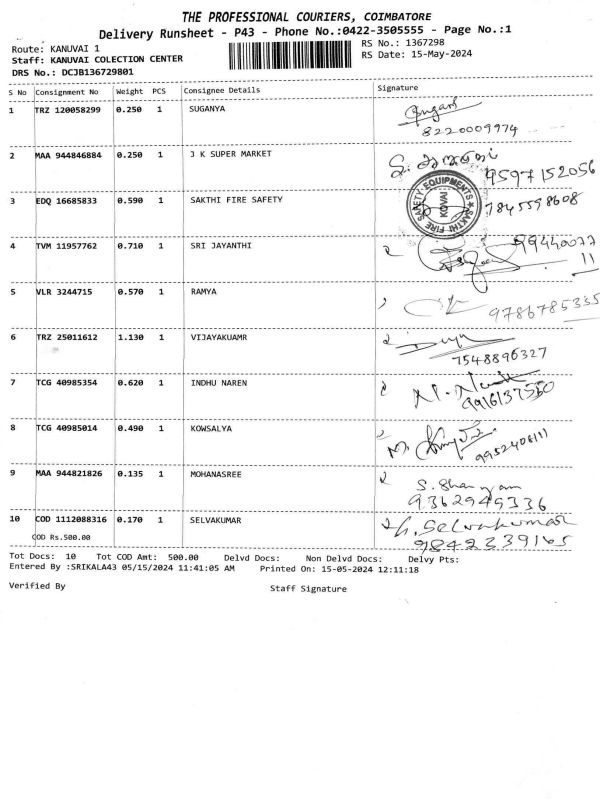 THE PROFESSIONAL COURIERS, COIMBATORE
Delivery Runsheet - P43 - Phone No.:0422-3505555 - Page No.:1
Route: KANUVAI 1
RS No.: 1367298
Staff: KANUVAI COLECTION CENTER
RS Date: 15-May-2024
DRS No.: DCJB136729801
S No Consignment No Weight PCS Consignee Details Signature
1 TRZ 120058299 0.250 1 SUGANYA
8220009974
2 MAA 944846884 0.250 1 J K SUPER MARKET
9597152056
3 EDQ 16685833 0.590 1 SAKTHI FIRE SAFETY
SAKTHI FIRE SAFETY EQUIPMENTS
KOVAI
7845598608
4 TVM 11957762 0.710 1 SRI JAYANTHI
99440077
11
5 VLR 3244715 0.570 1 RAMYA
9786785335
6 TRZ 25011612 1.130 1 VIJAYAKUAMR
7548896327
7 TCG 40985354 0.620 1 INDHU NAREN
8 TCG 40985014 0.490 1 KOWSALYA
9 MAA 944821826 0.135 1 MOHANASREE
9362945336
10 COD 1112088316 0.170 1 SELVAKUMAR
Selvakumar
COD Rs.500.00
9842339165
Tot Docs: 10 Tot COD Amt: 500.00 Delvd Docs: Non Delvd Docs: Delvy Pts:
Entered By :SRIKALA43 05/15/2024 11:41:05 AM Printed On: 15-05-2024 12:11:18
Verified By Staff Signature